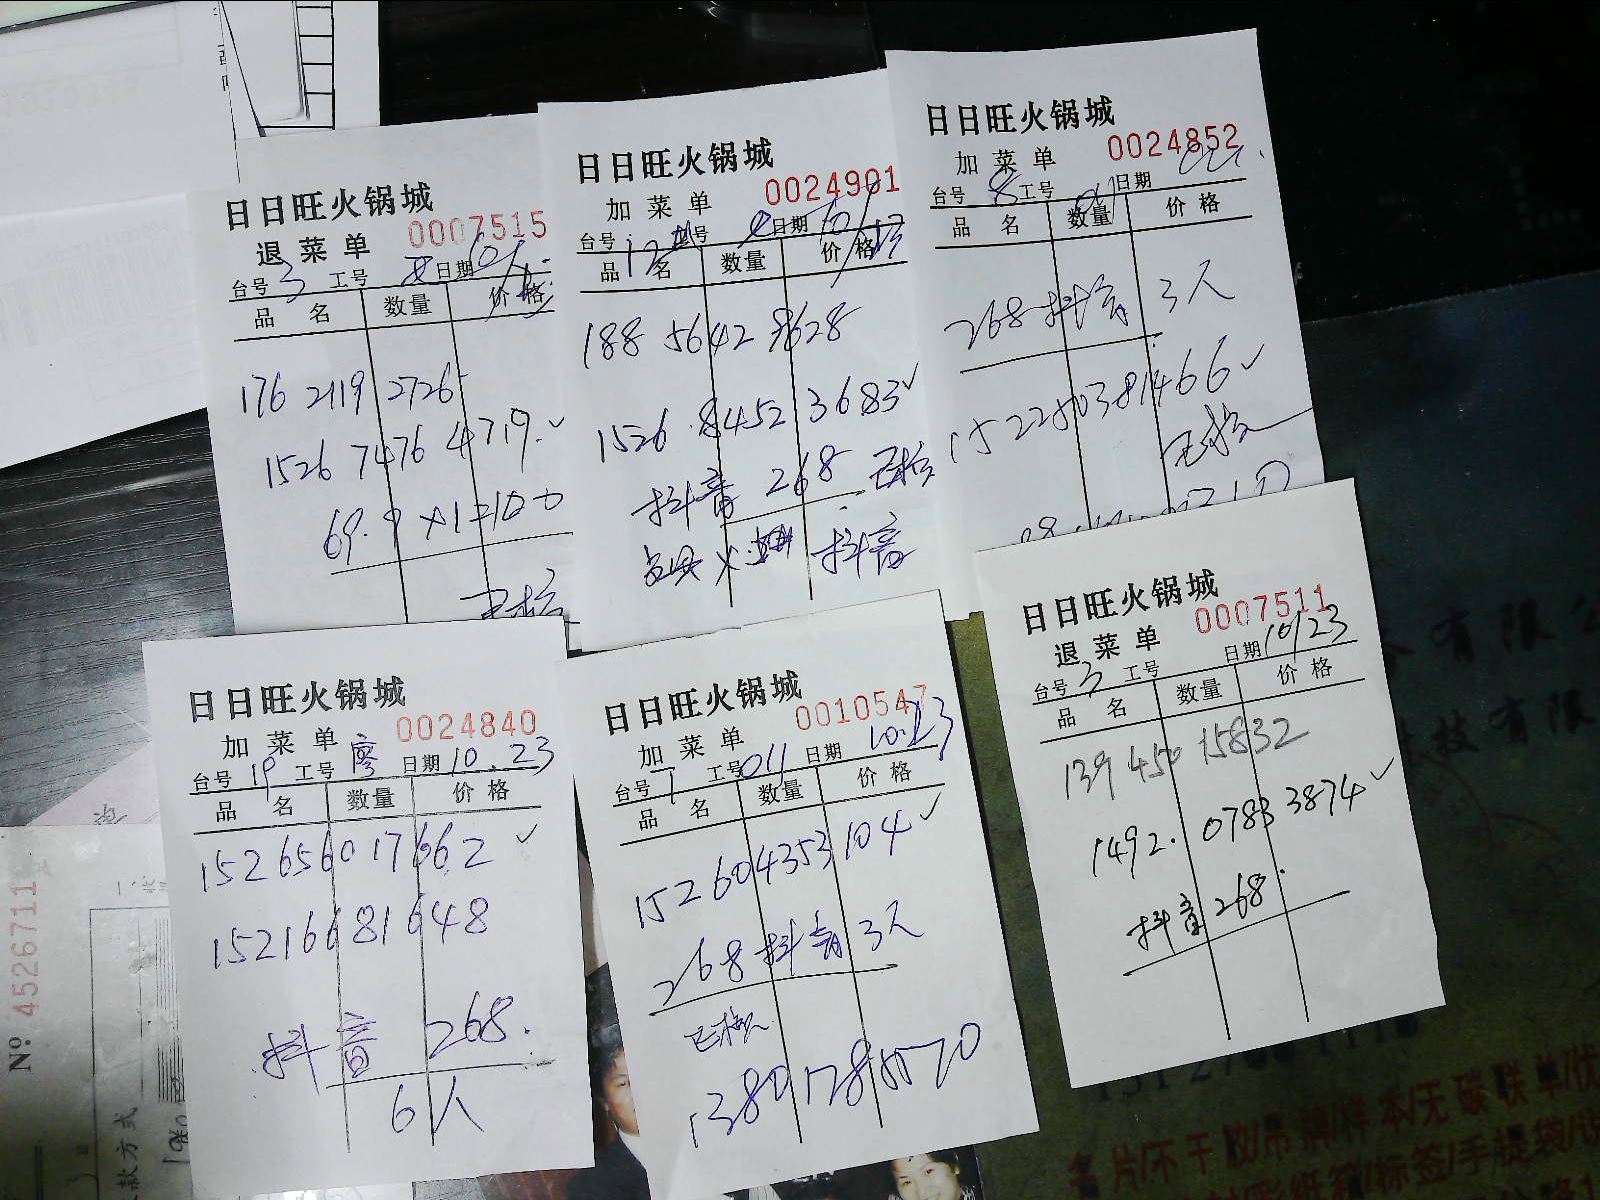 日日旺火锅城
退菜单 0007515
台号 3 工号 日期
品名 数量 价格
176 2119 2726
1526 7476 4719. ✓
69.9 × 1 = 100
已核
日日旺火锅城
加菜单 0024901
台号 12 工号 日期
品名 数量 价格
188 5642 8628
1526 8452 3683 ✓
抖音 268 已核
抖音
日日旺火锅城
加菜单 0024852
台号 8 工号 011 日期
品名 数量 价格
268 抖音 3人
152250381466 ✓
已核
日日旺火锅城
加菜单 0024840
台号 19 工号 廖 日期 10.23
品名 数量 价格
152656017662 ✓
15216681648
抖音 268.
6人
日日旺火锅城
加菜单 0010547
台号 工号 011 日期 10.23
品名 数量 价格
152604353104 ✓
268 抖音 3人
已核
13801788570
日日旺火锅城
退菜单 0007511
台号 3 工号 日期 10/23
品名 数量 价格
139 450 15832
1492. 0783 3874 ✓
抖音 268.
Nº 4526711
款方式
有限公
技有限
名片/不干胶/吊牌/样本/无碳联单/优
标签/手提袋/